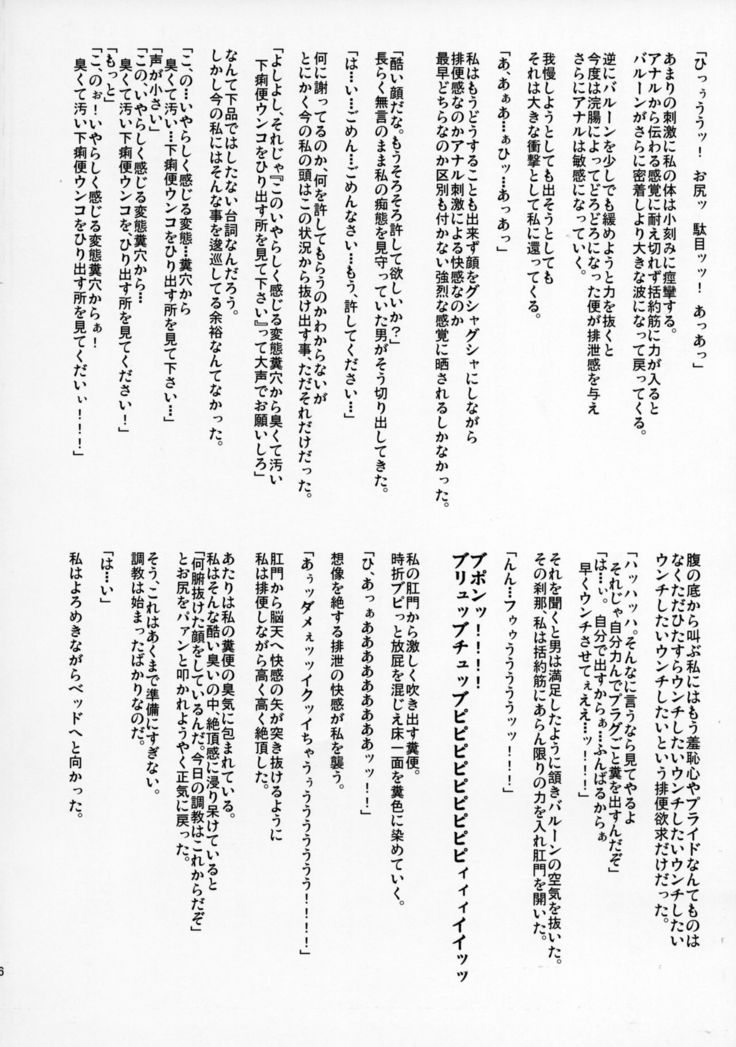 「ひっぅううッ！ お尻ッ 駄目ッッ！ あっあっ」
あまりの刺激に私の体は小刻みに痙攣する。
アナルから伝わる感覚に耐え切れず括約筋に力が入ると
バルーンがさらに密着しより大きな波になって戻ってくる。
逆にバルーンを少しでも緩めようと力を抜くと
今度は浣腸によってどろどろになった便が排泄感を与え
さらにアナルは敏感になっていく。
我慢しようとしても出そうとしても
それは大きな衝撃として私に還ってくる。
「あ、あぁあ…ぁひッ…あっあっ」
私はもうどうすることも出来ず顔をグシャグシャにしながら
排便感なのかアナル刺激による快感なのか
最早どちらなのか区別も付かない強烈な感覚に晒されるしかなかった。
「酷い顔だな。もうそろそろ許して欲しいか？」
長らく無言のまま私の痴態を見守っていた男がそう切り出してきた。
「は…い…ごめん…ごめんなさい…もう、許してください…」
何に謝ってるのか、何を許してもらうのかわからないが
とにかく今の私の頭はこの状況から抜け出す事、ただそれだけだった。
「よしよし、それじゃ『このいやらしく感じる変態糞穴から臭くて汚い
下痢便ウンコをひり出す所を見て下さい』って大声でお願いしろ」
なんて下品ではしたない台詞なんだろう。
しかし今の私にはそんな事を逡巡してる余裕なんてなかった。
「こ、の…いやらしく感じる変態…糞穴から
臭くて汚い…下痢便ウンコをひり出す所を見て下さい…」
「声が小さい」
「この、いやらしく感じる変態糞穴から…
臭くて汚い下痢便ウンコを、ひり出す所を見てください！」
「もっと」
「こ、のぉ！いやらしく感じる変態糞穴からぁ！
臭くて汚い下痢便ウンコをひり出す所を見てくだいぃ！！！」
腹の底から叫ぶ私にはもう羞恥心やプライドなんてものは
なくただひたすらウンチしたいウンチしたいウンチしたい
ウンチしたいウンチしたいウンチしたいという排便欲求だけだった。
「ハッハッハ。そんなに言うなら見てやるよ
それじゃ自分力んでプラグごと糞を出すんだぞ」
「は…ぃ。自分で出すからぁ…ふんばるからぁ
早くウンチさせてぇええ…ッ！！！」
それを聞くと男は満足したように頷きバルーンの空気を抜いた。
その刹那、私は括約筋にあらん限りの力を入れ肛門を開いた。
「んん…フゥゥうううううッッ！！！」
ブボンッ！！！！
ブリュッブチュッブピピピピピピピピピィィィイイイッッ
私の肛門から激しく吹き出す糞便。
時折ブピっと放屁を混じえ床一面を糞色に染めていく。
「ひ、あっぁああああああああああッッ！！」
想像を絶する排泄の快感が私を襲う。
「あぅッダメぇッッイクッイちゃうぅううううううう！！！！」
肛門から脳天へ快感の矢が突き抜けるように
私は排便しながら高く高く絶頂した。
あたりは私の糞便の臭気に包まれている。
私はそんな酷い臭いの中、絶頂感に浸り呆けていると
「何腑抜けた顔をしているんだ。今日の調教はこれからだぞ」
とお尻をパァンと叩かれようやく正気に戻った。
そう、これはあくまで準備にすぎない。
調教は始まったばかりなのだ。
「は…い」
私はよろめきながらベッドへと向かった。
6